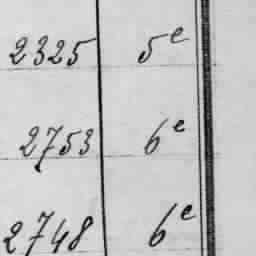 2325 5e
2753 6e
2748 6e